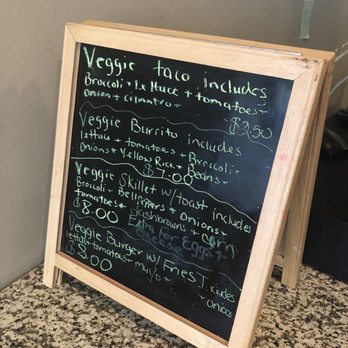 Veggie taco includes
Broccoli + Lettuce + tomatoes +
Onion + cilantro +
$2.50
Veggie Burrito includes
lettuce + tomatoes + Broccoli +
Onions + Yellow Rice + Beans +
$7.00
Veggie Skillet w/toast includes
Broccoli - Bell Peppers + Onions +
tomatoes + Hashbrowns + corn
$8.00 Extra For Eggs +
Cheese
Veggie Burger w/ Fries includes
lettuce tomatoes + mayo + Onions
$8.00